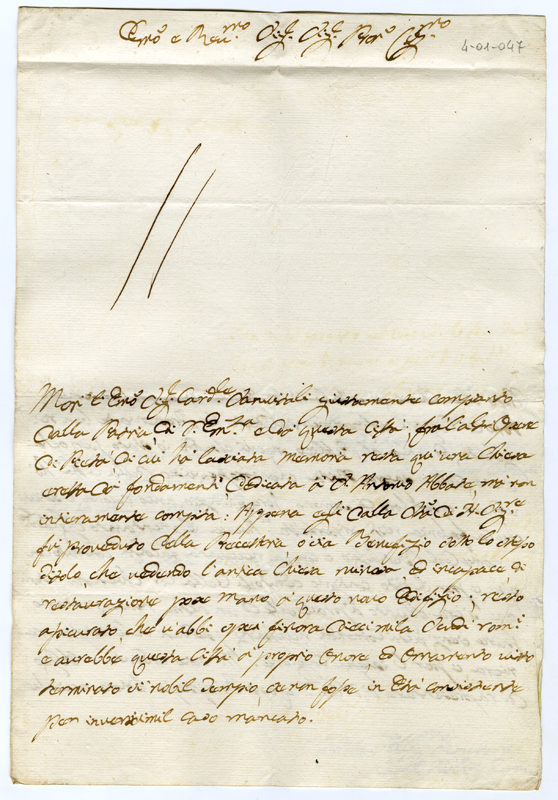 Emo e Reumo Sigr. Sigr. Pron. Colmo
4-01-047
Morì l'Emo Sigr. Cardle giustamente compianto
dalla Patria di V. Emza e da questa Città: fra l'altre Opere
di Pietà di cui hà lasciata memoria resta qui una Chiesa
eretta da fondamenti dedicata à S. Abbate mà non
interamente compita: Appena egli dalla di N. Sigre
fù proveduto della ò sia Beneficio sotto lo stesso
titolo che vedendo l'antica Chiesa ed incapace di
restaurazione pose mano à questo novo Edifizio: resto
assicurato, che v'abbi spesi finora Diecimila Scudi romi
e avrebbe questa Città à proprio onore ed ornamento visto
terminato di nobil Tempio se non fosse in Età consistente
per inverisimil caso mancato.